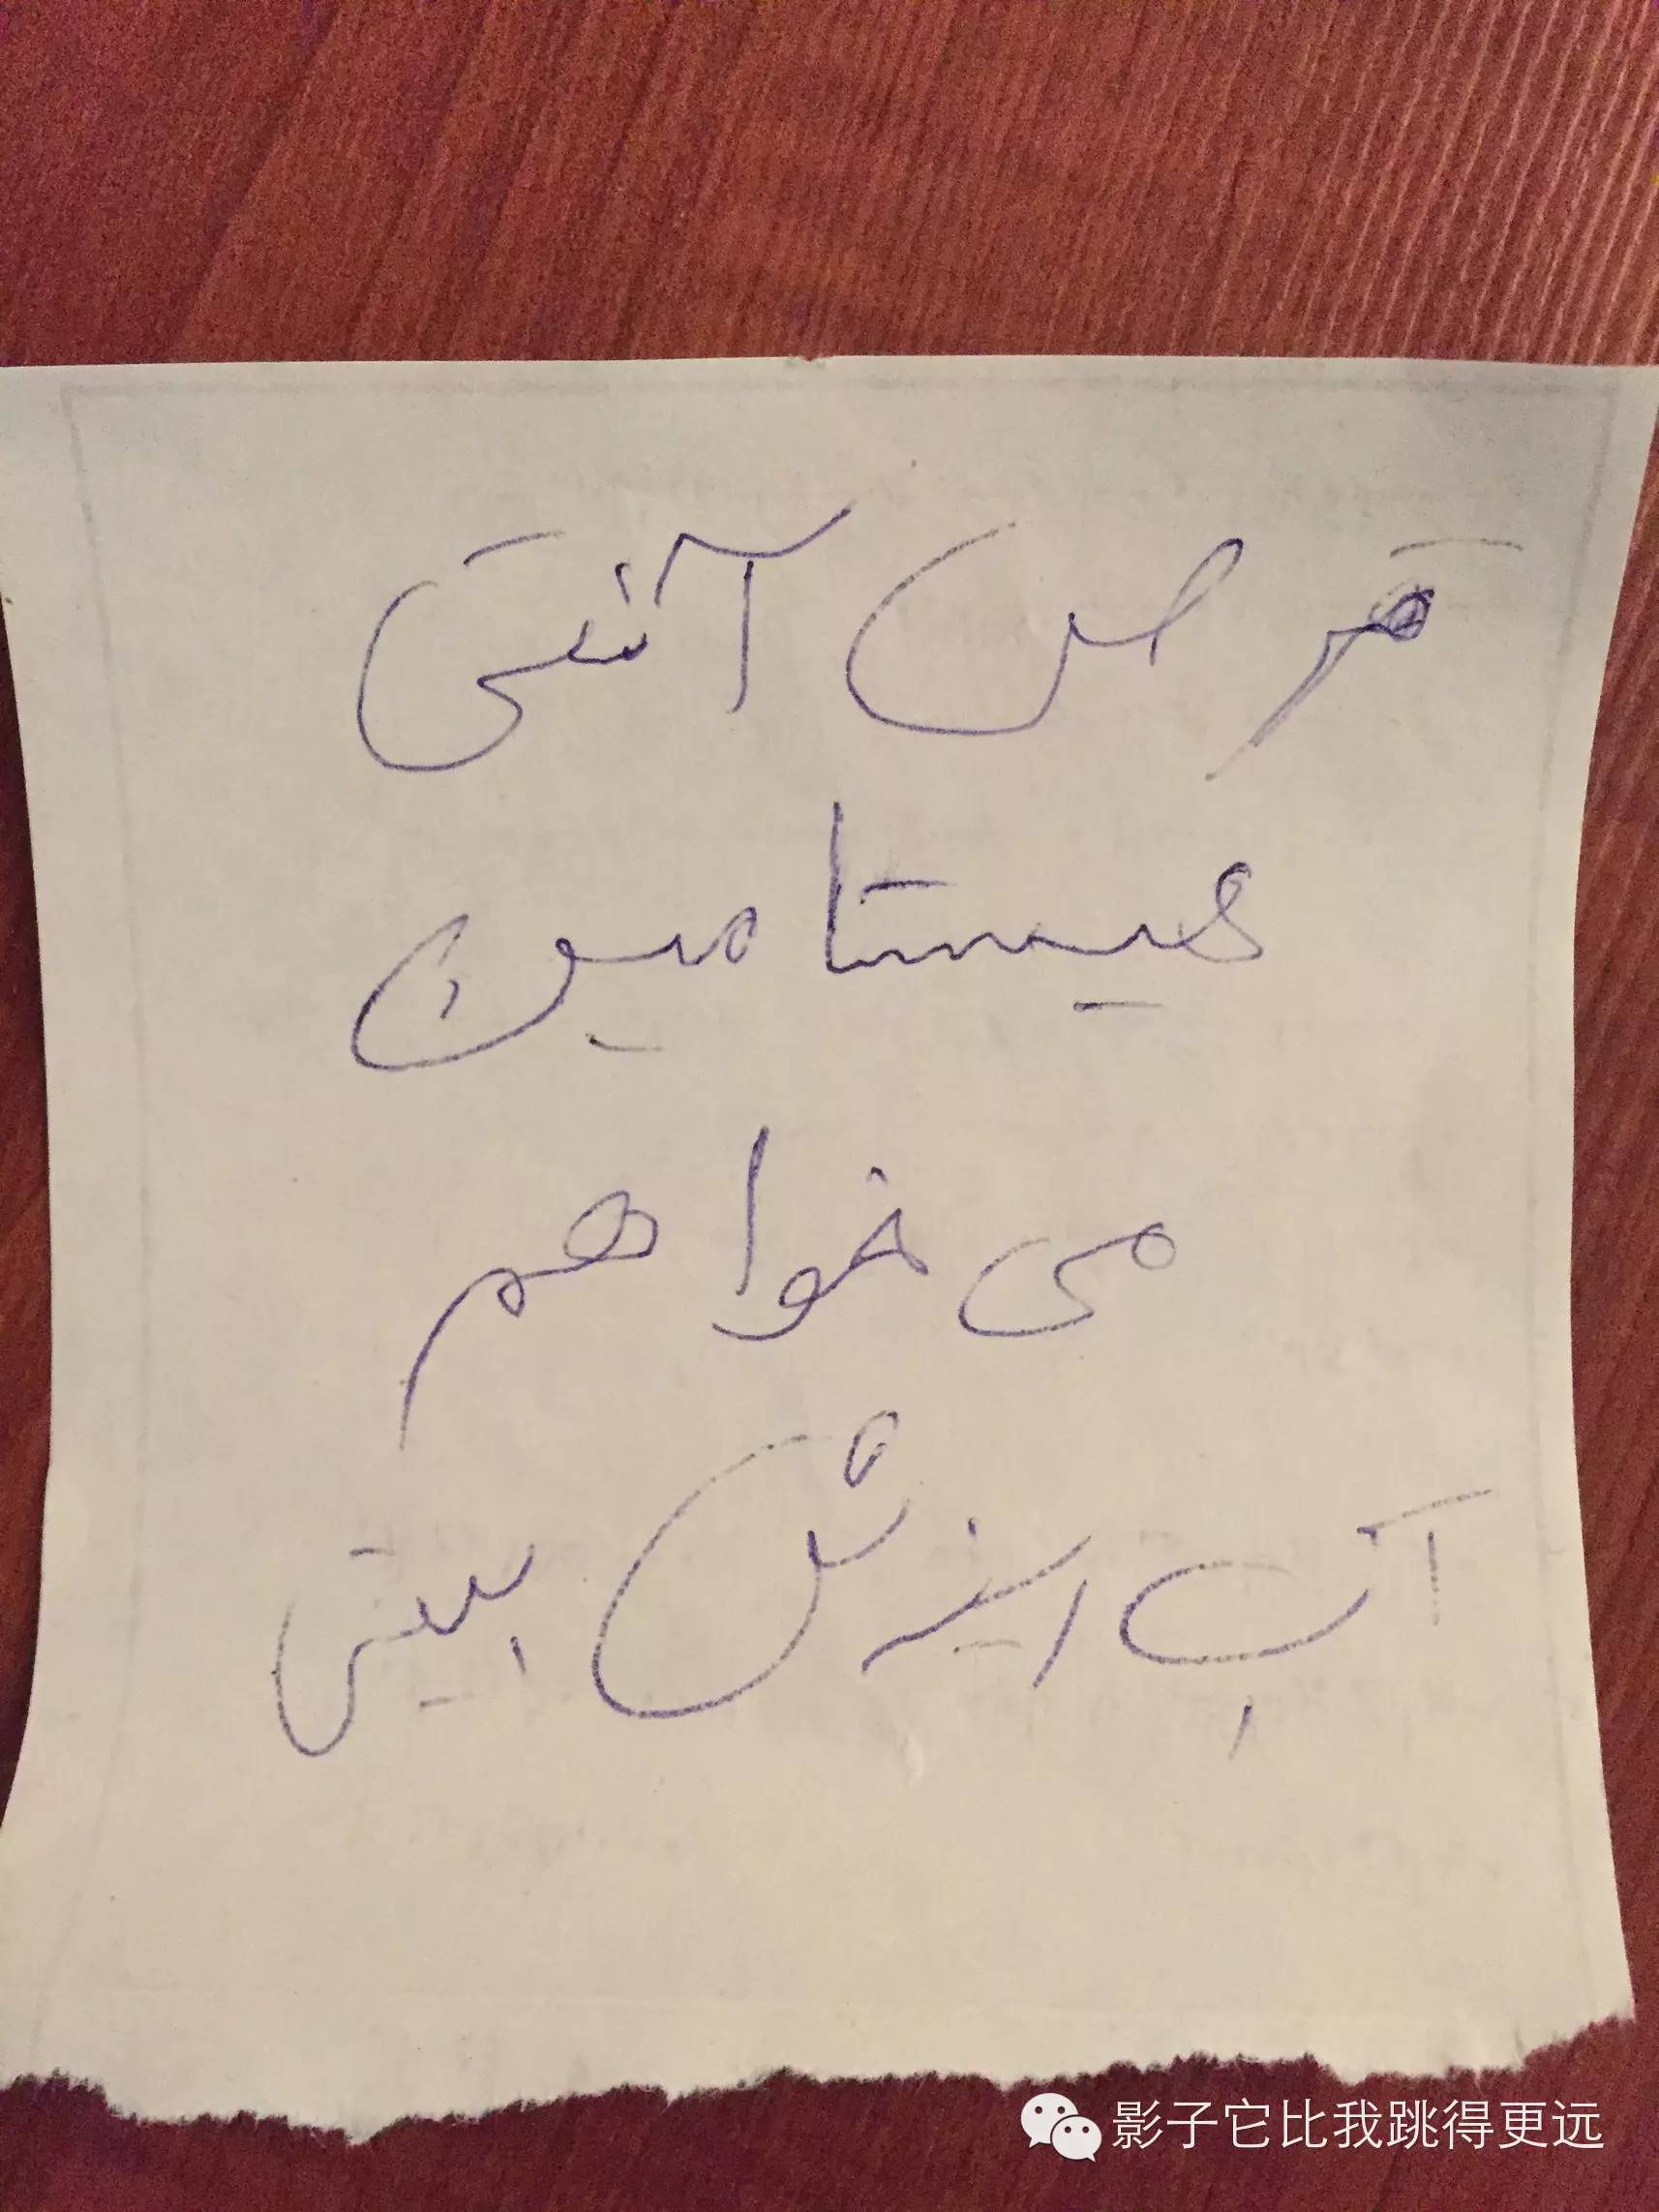 قرص آنتی
هیستامین
می خواهم
آب ریزش بینی
影子它比我跳得更远